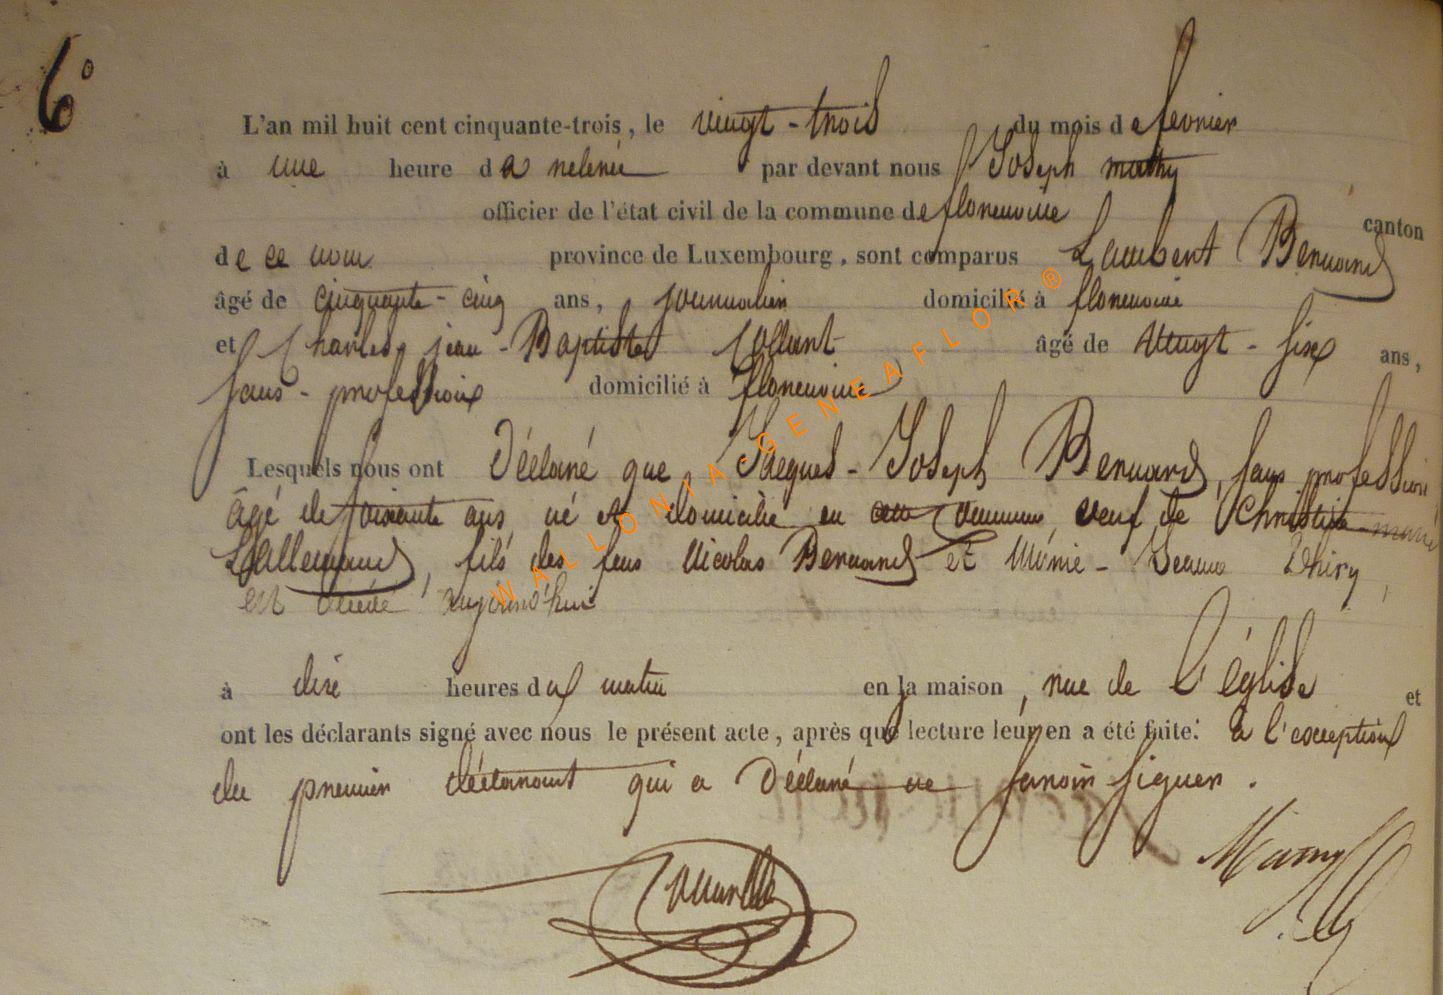 6°
L'an mil huit cent cinquante-trois, le vingt-trois du mois de fevrier
à une heure de relevée par devant nous Joseph mathy
officier de l'état civil de la commune de florenville
canton
de ce nom province de Luxembourg, sont comparus Lambert Bernard
âgé de cinquante-cinq ans, journalier domicilié à florenville
et Charles jean-Baptiste âgé de vingt-six ans,
sans-profession domicilié à florenville
Lesquels nous ont Déclaré que Jacques-Joseph Bernard, sans profession
âgé de soixante ans né et domicilié en cette Commune, veuf de Christine-marie
Lallemand, fils des feus Nicolas Bernard et Marie-Jeanne Thiry,
est décédé aujourd'hui
à dix heures du matin en sa maison, rue de l'église et
ont les déclarants signé avec nous le présent acte, après que lecture leur en a été faite. à l'exception
du premier déclarant qui a Déclaré ne savoir signer.
WALLONIA-GENEAFLOR®